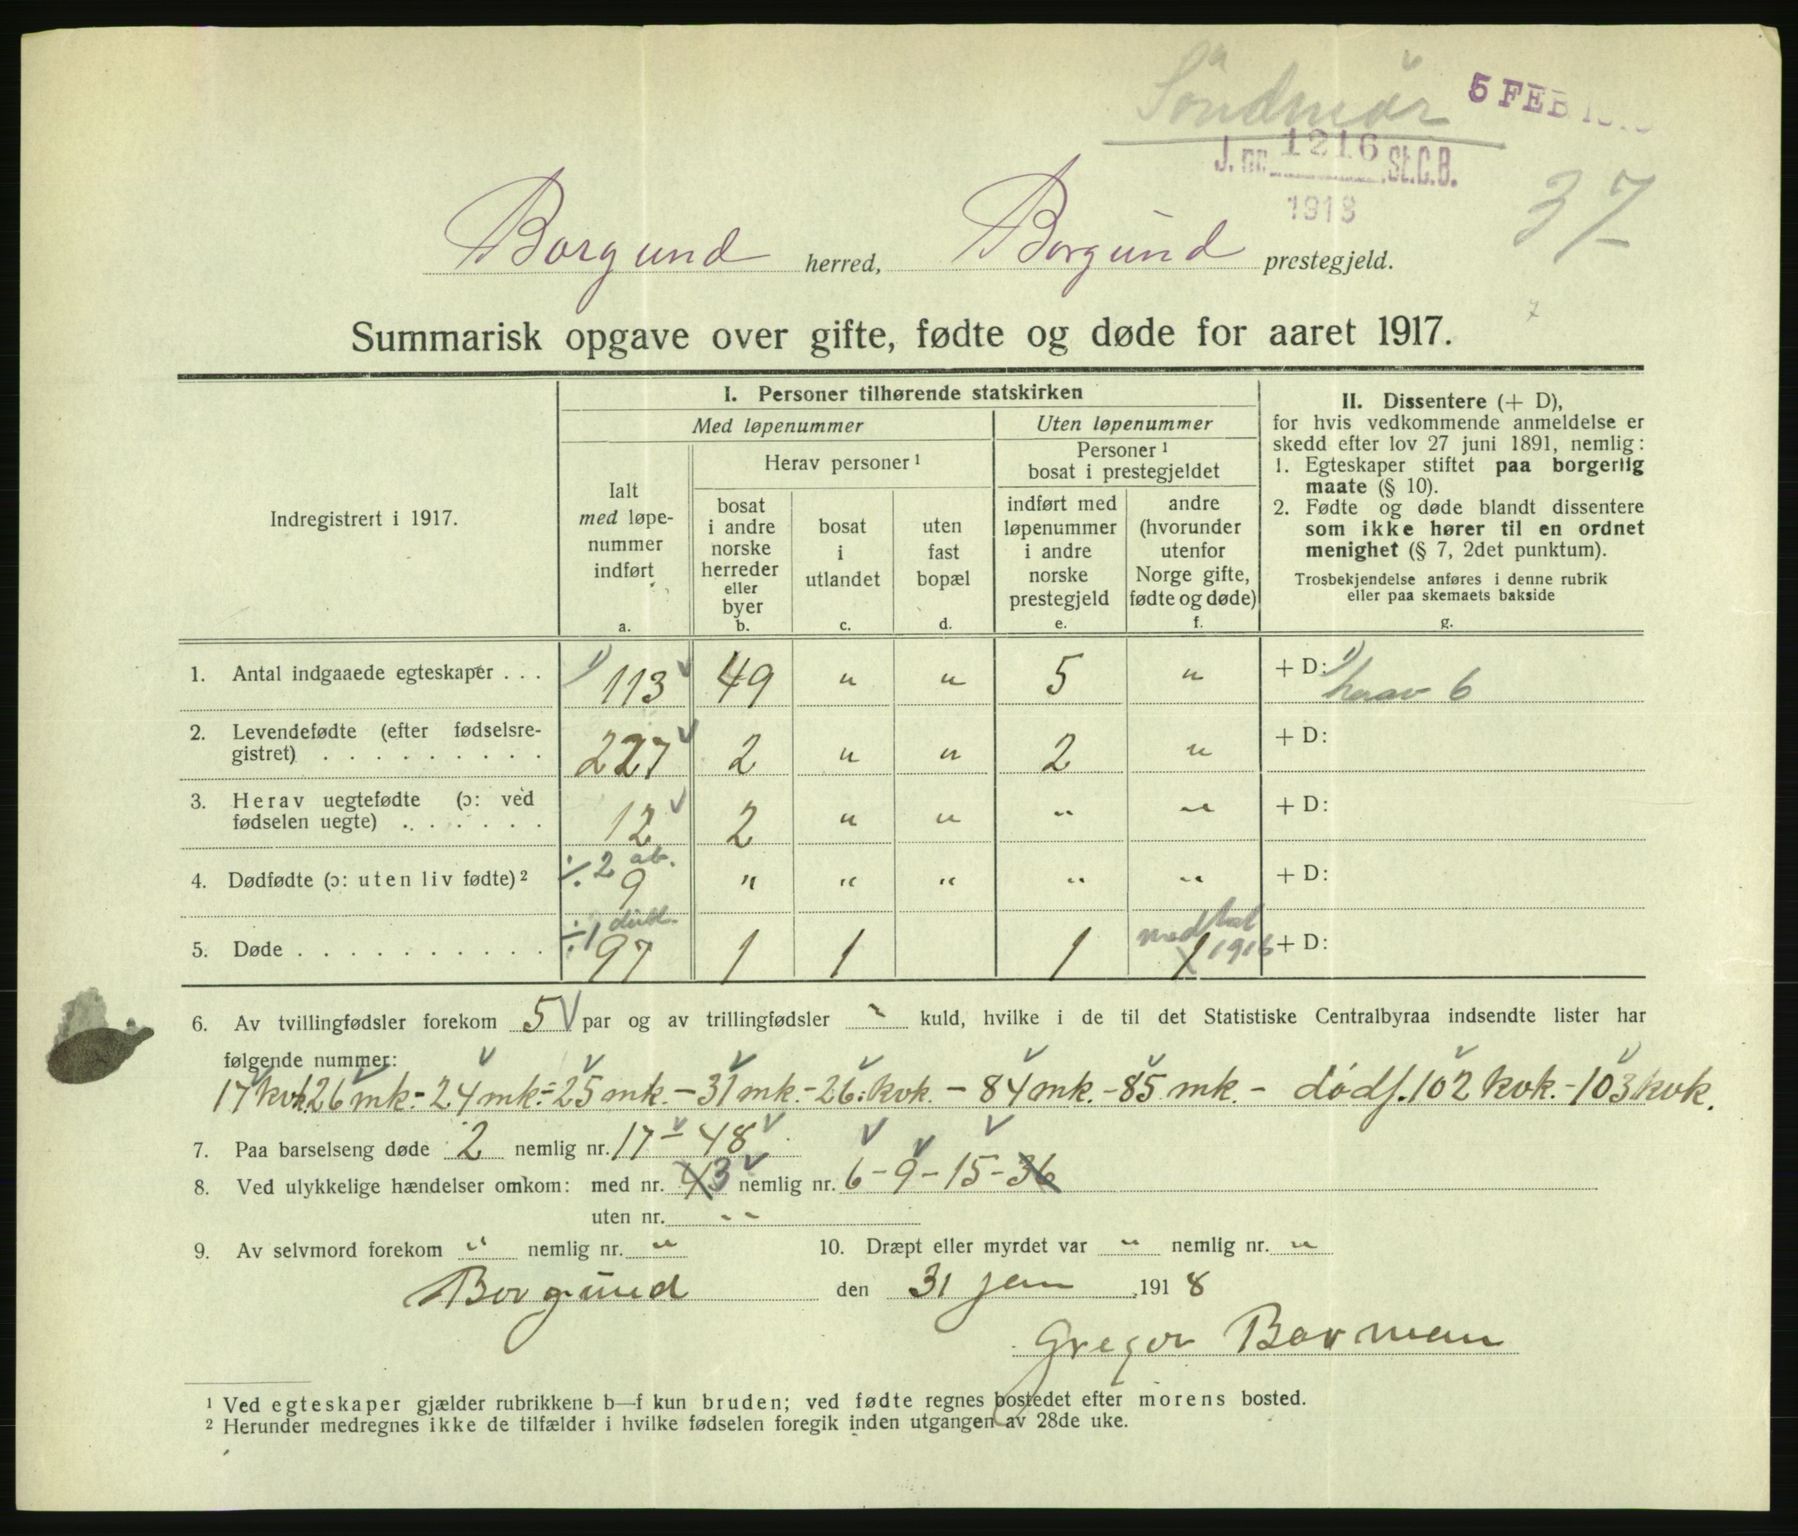 Söndmör
5 FEB 191
J. nr. 1216 St.C.B.
1918
37
Borgund herred, Borgund prestegjeld.
7
Summarisk opgave over gifte, fødte og døde for aaret 1917.
Indregistrert i 1917.
I. Personer tilhørende statskirken
Med løpenummer
Uten løpenummer
Herav personer ¹
Personer ¹
bosat i prestegjeldet
Ialt
med løpe-
nummer
indført
a.
bosat
i andre
norske
herreder
eller
byer
b.
bosat
i
utlandet
c.
uten
fast
bopæl
d.
indført med
løpenummer
i andre
norske
prestegjeld
e.
andre
(hvorunder
utenfor
Norge gifte,
fødte og døde)
f.
II. Dissentere (+ D),
for hvis vedkommende anmeldelse er
skedd efter lov 27 juni 1891, nemlig:
1. Egteskaper stiftet paa borgerlig
maate (§ 10).
2. Fødte og døde blandt dissentere
som ikke hører til en ordnet
menighet (§ 7, 2det punktum).
Trosbekjendelse anføres i denne rubrik
eller paa skemaets bakside
g.
1. Antal indgaaede egteskaper . . . 1) 113 49 " " 5 " + D: 1) herav 6
2. Levendefødte (efter fødselsre-
gistret) . . . . . . . . . 227 2 " " 2 " + D:
3. Herav uegtefødte (ɔ: ved
fødselen uegte) . . . . . . 12 2 " " " " + D:
÷ 2 ab.
4. Dødfødte (ɔ: uten liv fødte) ² 9 " " " " " + D:
÷ 1
5. Døde . . . . . . . . . . 97 1 1 1 1 1916 + D:
6. Av tvillingfødsler forekom 5 par og av trillingfødsler " kuld, hvilke i de til det Statistiske Centralbyraa indsendte lister har
følgende nummer:
17 kvk. 26 mk. - 24 mk. - 25 mk. - 31 mk. - 26. kvk. - 84 mk. - 85 mk. - dødf. 102 kvk. - 103 kvk.
7. Paa barselseng døde 2 nemlig nr. 17 - 48
8. Ved ulykkelige hændelser omkom: med nr. 4 3 nemlig nr. 6 - 9 - 15 - 36
uten nr. "
9. Av selvmord forekom " nemlig nr. " 10. Dræpt eller myrdet var " nemlig nr. "
Borgund den 31 jan 1918
Gregor Borman
¹ Ved egteskaper gjælder rubrikkene b—f kun bruden; ved fødte regnes bostedet efter morens bosted.
² Herunder medregnes ikke de tilfælder i hvilke fødselen foregik inden utgangen av 28de uke.